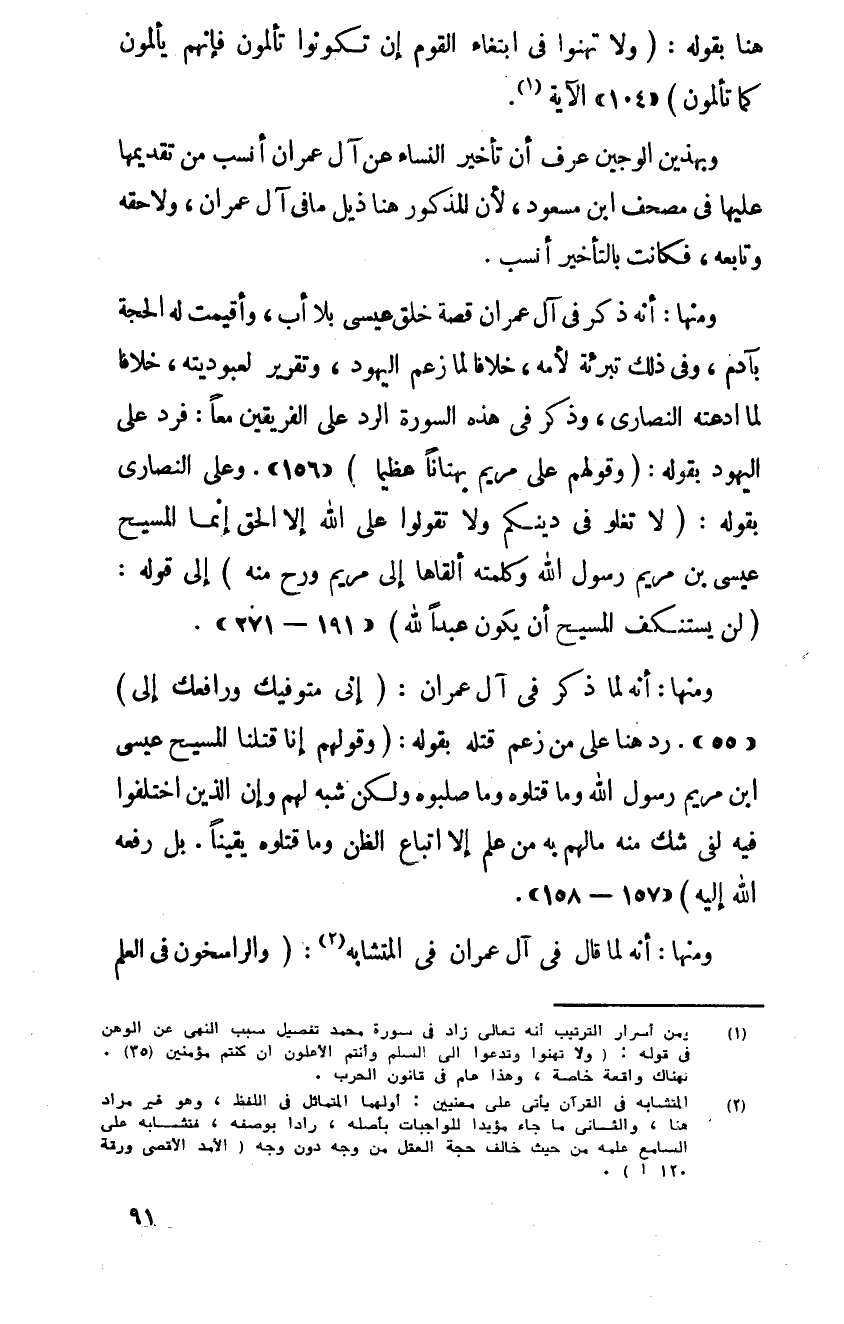 هنا بقوله : ( ولا تهنوا فى ابتغاء القوم إن تكونوا تألمون فإنهم يألمون
كما تألمون ) «١٠٤» الآية (١).
وبهذين الوجين عرف أن تأخير النساء عن آل عمران أنسب من تقديمها
عليها فى مصحف ابن مسعود ، لأن المذكور هنا ذيل مافى آل عمران ، ولاحقه
وتابعه ، فكانت بالتأخير أنسب .
ومنها : أنه ذكر فى آل عمران قصة خلق عيسى بلا أب ، وأقيمت له الحجة
بآدم ، وفى ذلك تبرئة لأمه ، خلافا لما زعم اليهود ، وتقرير لعبوديته ، خلافا
لما ادعته النصارى ، وذكر فى هذه السورة الرد على الفريقين معاً : فرد على
اليهود بقوله : ( وقولهم على مريم بهتاناً عظيما ) «١٥٦» . وعلى النصارى
بقوله : ( لا تغلو فى دينكم ولا تقولوا على الله إلا الحق إنما المسيح
عيسى بن مريم رسول الله وكلمته ألقاها إلى مريم ورح منه ) إلى قوله :
( لن يستنكف المسيح أن يكون عبداً لله ) « ١٩١ — ٢٧١ » .
ومنها : أنه لما ذكر فى آل عمران : ( إنى متوفيك ورافعك إلى )
« ٥٥ » . رد هنا على من زعم قتله بقوله : ( وقولهم إنا قتلنا المسيح عيسى
ابن مريم رسول الله وما قتلوه وما صلبوه ولكن شبه لهم وإن الذين اختلفوا
فيه لفى شك منه مالهم به من علم إلا اتباع الظن وما قتلوه يقيناً . بل رفعه
الله إليه ) «١٥٧ — ١٥٨» .
ومنها : أنه لما قال فى آل عمران فى المتشابه(٢) : ( والراسخون فى العلم
(١) ومن أسرار الترتيب أنه تعالى زاد فى سورة محمد تفصيل سبب النهى عن الوهن
فى قوله : ( ولا تهنوا وتدعوا الى السلم وأنتم الأعلون ان كنتم مؤمنين (٣٥) .
نهناك واقعة خاصة ، وهذا عام فى قانون الحرب .
(٢) المتشابه فى القرآن يأتى على معنيين : أولهما المتماثل فى اللفظ ، وهو غير مراد
هنا ، والثانى ما جاء مؤيدا للواجبات بأصله ، رادا بوصفه ، فتشابه على
السامع علمه من حيث خالف حجة العقل من وجه دون وجه ( الأمد الأقصى ورقة
١٢٠ أ ) .
٩١